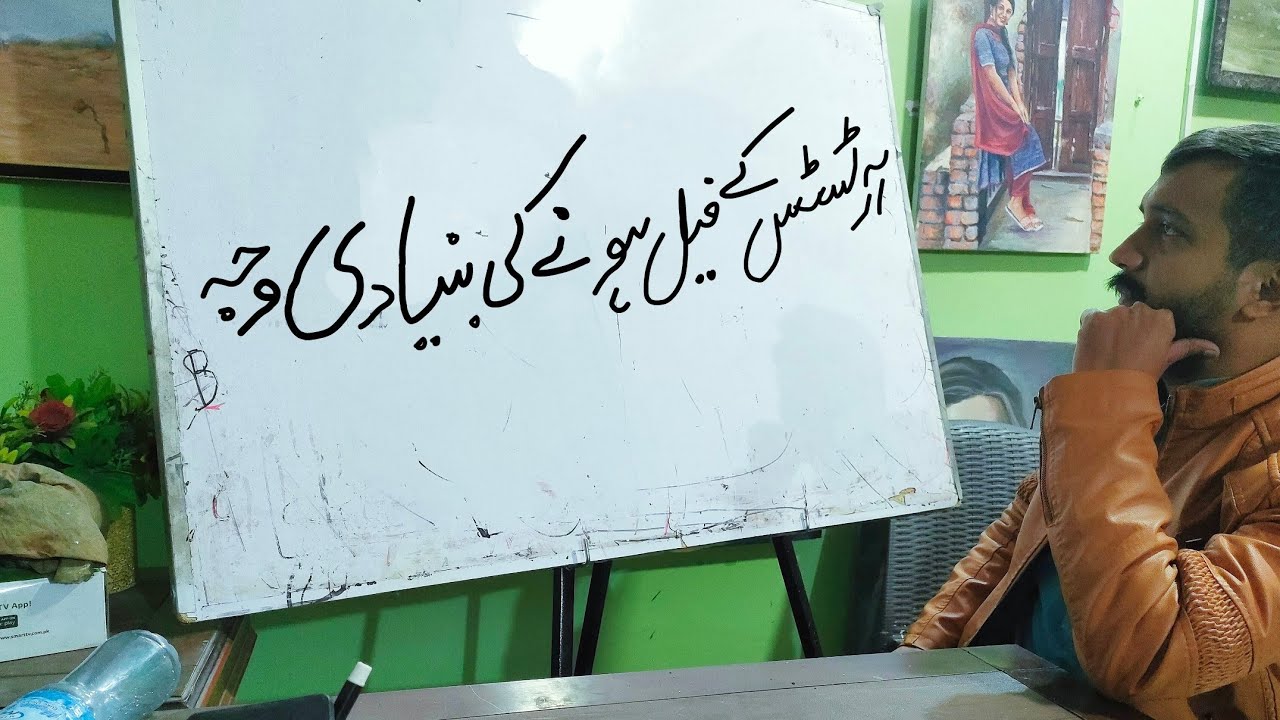 ارٹسٹس کے فیل ہونے کی بنیادی وجہ
B
TV App!